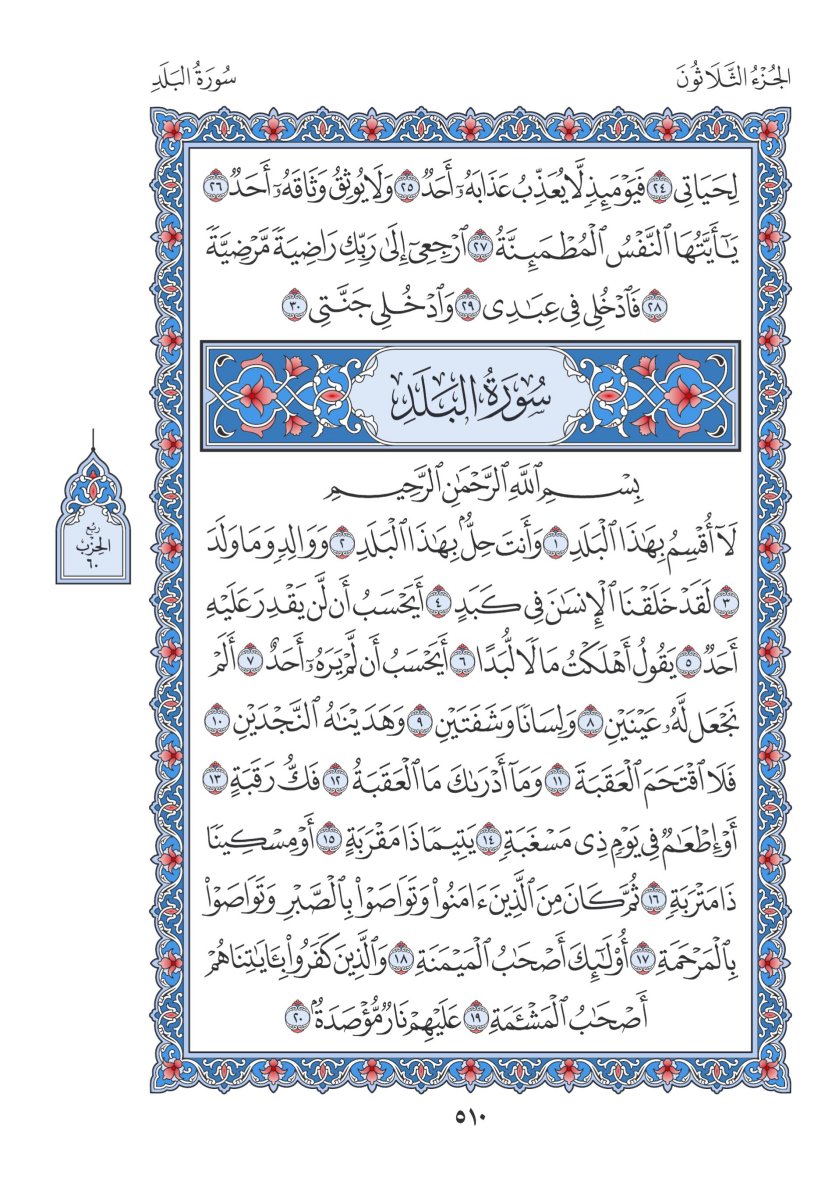 الجُزْءُ الثَّلَاثُونَ
سُورَةُ البَلَدِ
لِحَيَاتِي ٢٤ فَيَوْمَئِذٍ لَّا يُعَذِّبُ عَذَابَهُۥٓ أَحَدٌ ٢٥ وَلَا يُوثِقُ وَثَاقَهُۥٓ أَحَدٌ ٢٦
يَٰٓأَيَّتُهَا ٱلنَّفْسُ ٱلْمُطْمَئِنَّةُ ٢٧ ٱرْجِعِىٓ إِلَىٰ رَبِّكِ رَاضِيَةً مَّرْضِيَّةً
٢٨ فَٱدْخُلِى فِى عِبَٰدِى ٢٩ وَٱدْخُلِى جَنَّتِى ٣٠
سُورَةُ البَلَدِ
بِسْمِ ٱللَّهِ ٱلرَّحْمَٰنِ ٱلرَّحِيمِ
لَآ أُقْسِمُ بِهَٰذَا ٱلْبَلَدِ ١ وَأَنتَ حِلٌّۢ بِهَٰذَا ٱلْبَلَدِ ٢ وَوَالِدٍ وَمَا وَلَدَ
٣ لَقَدْ خَلَقْنَا ٱلْإِنسَٰنَ فِى كَبَدٍ ٤ أَيَحْسَبُ أَن لَّن يَقْدِرَ عَلَيْهِ
أَحَدٌ ٥ يَقُولُ أَهْلَكْتُ مَالًا لُّبَدًا ٦ أَيَحْسَبُ أَن لَّمْ يَرَهُۥٓ أَحَدٌ ٧ أَلَمْ
نَجْعَل لَّهُۥ عَيْنَيْنِ ٨ وَلِسَانًا وَشَفَتَيْنِ ٩ وَهَدَيْنَٰهُ ٱلنَّجْدَيْنِ ١٠
فَلَا ٱقْتَحَمَ ٱلْعَقَبَةَ ١١ وَمَآ أَدْرَىٰكَ مَا ٱلْعَقَبَةُ ١٢ فَكُّ رَقَبَةٍ ١٣
أَوْ إِطْعَٰمٌ فِى يَوْمٍ ذِى مَسْغَبَةٍ ١٤ يَتِيمًا ذَا مَقْرَبَةٍ ١٥ أَوْ مِسْكِينًا
ذَا مَتْرَبَةٍ ١٦ ثُمَّ كَانَ مِنَ ٱلَّذِينَ ءَامَنُوا۟ وَتَوَاصَوْا۟ بِٱلصَّبْرِ وَتَوَاصَوْا۟
بِٱلْمَرْحَمَةِ ١٧ أُو۟لَٰٓئِكَ أَصْحَٰبُ ٱلْمَيْمَنَةِ ١٨ وَٱلَّذِينَ كَفَرُوا۟ بِـَٔايَٰتِنَا هُمْ
أَصْحَٰبُ ٱلْمَشْـَٔمَةِ ١٩ عَلَيْهِمْ نَارٌ مُّؤْصَدَةٌۢ ٢٠
رُبُع
الحِزْب
٦٠
٥١٠